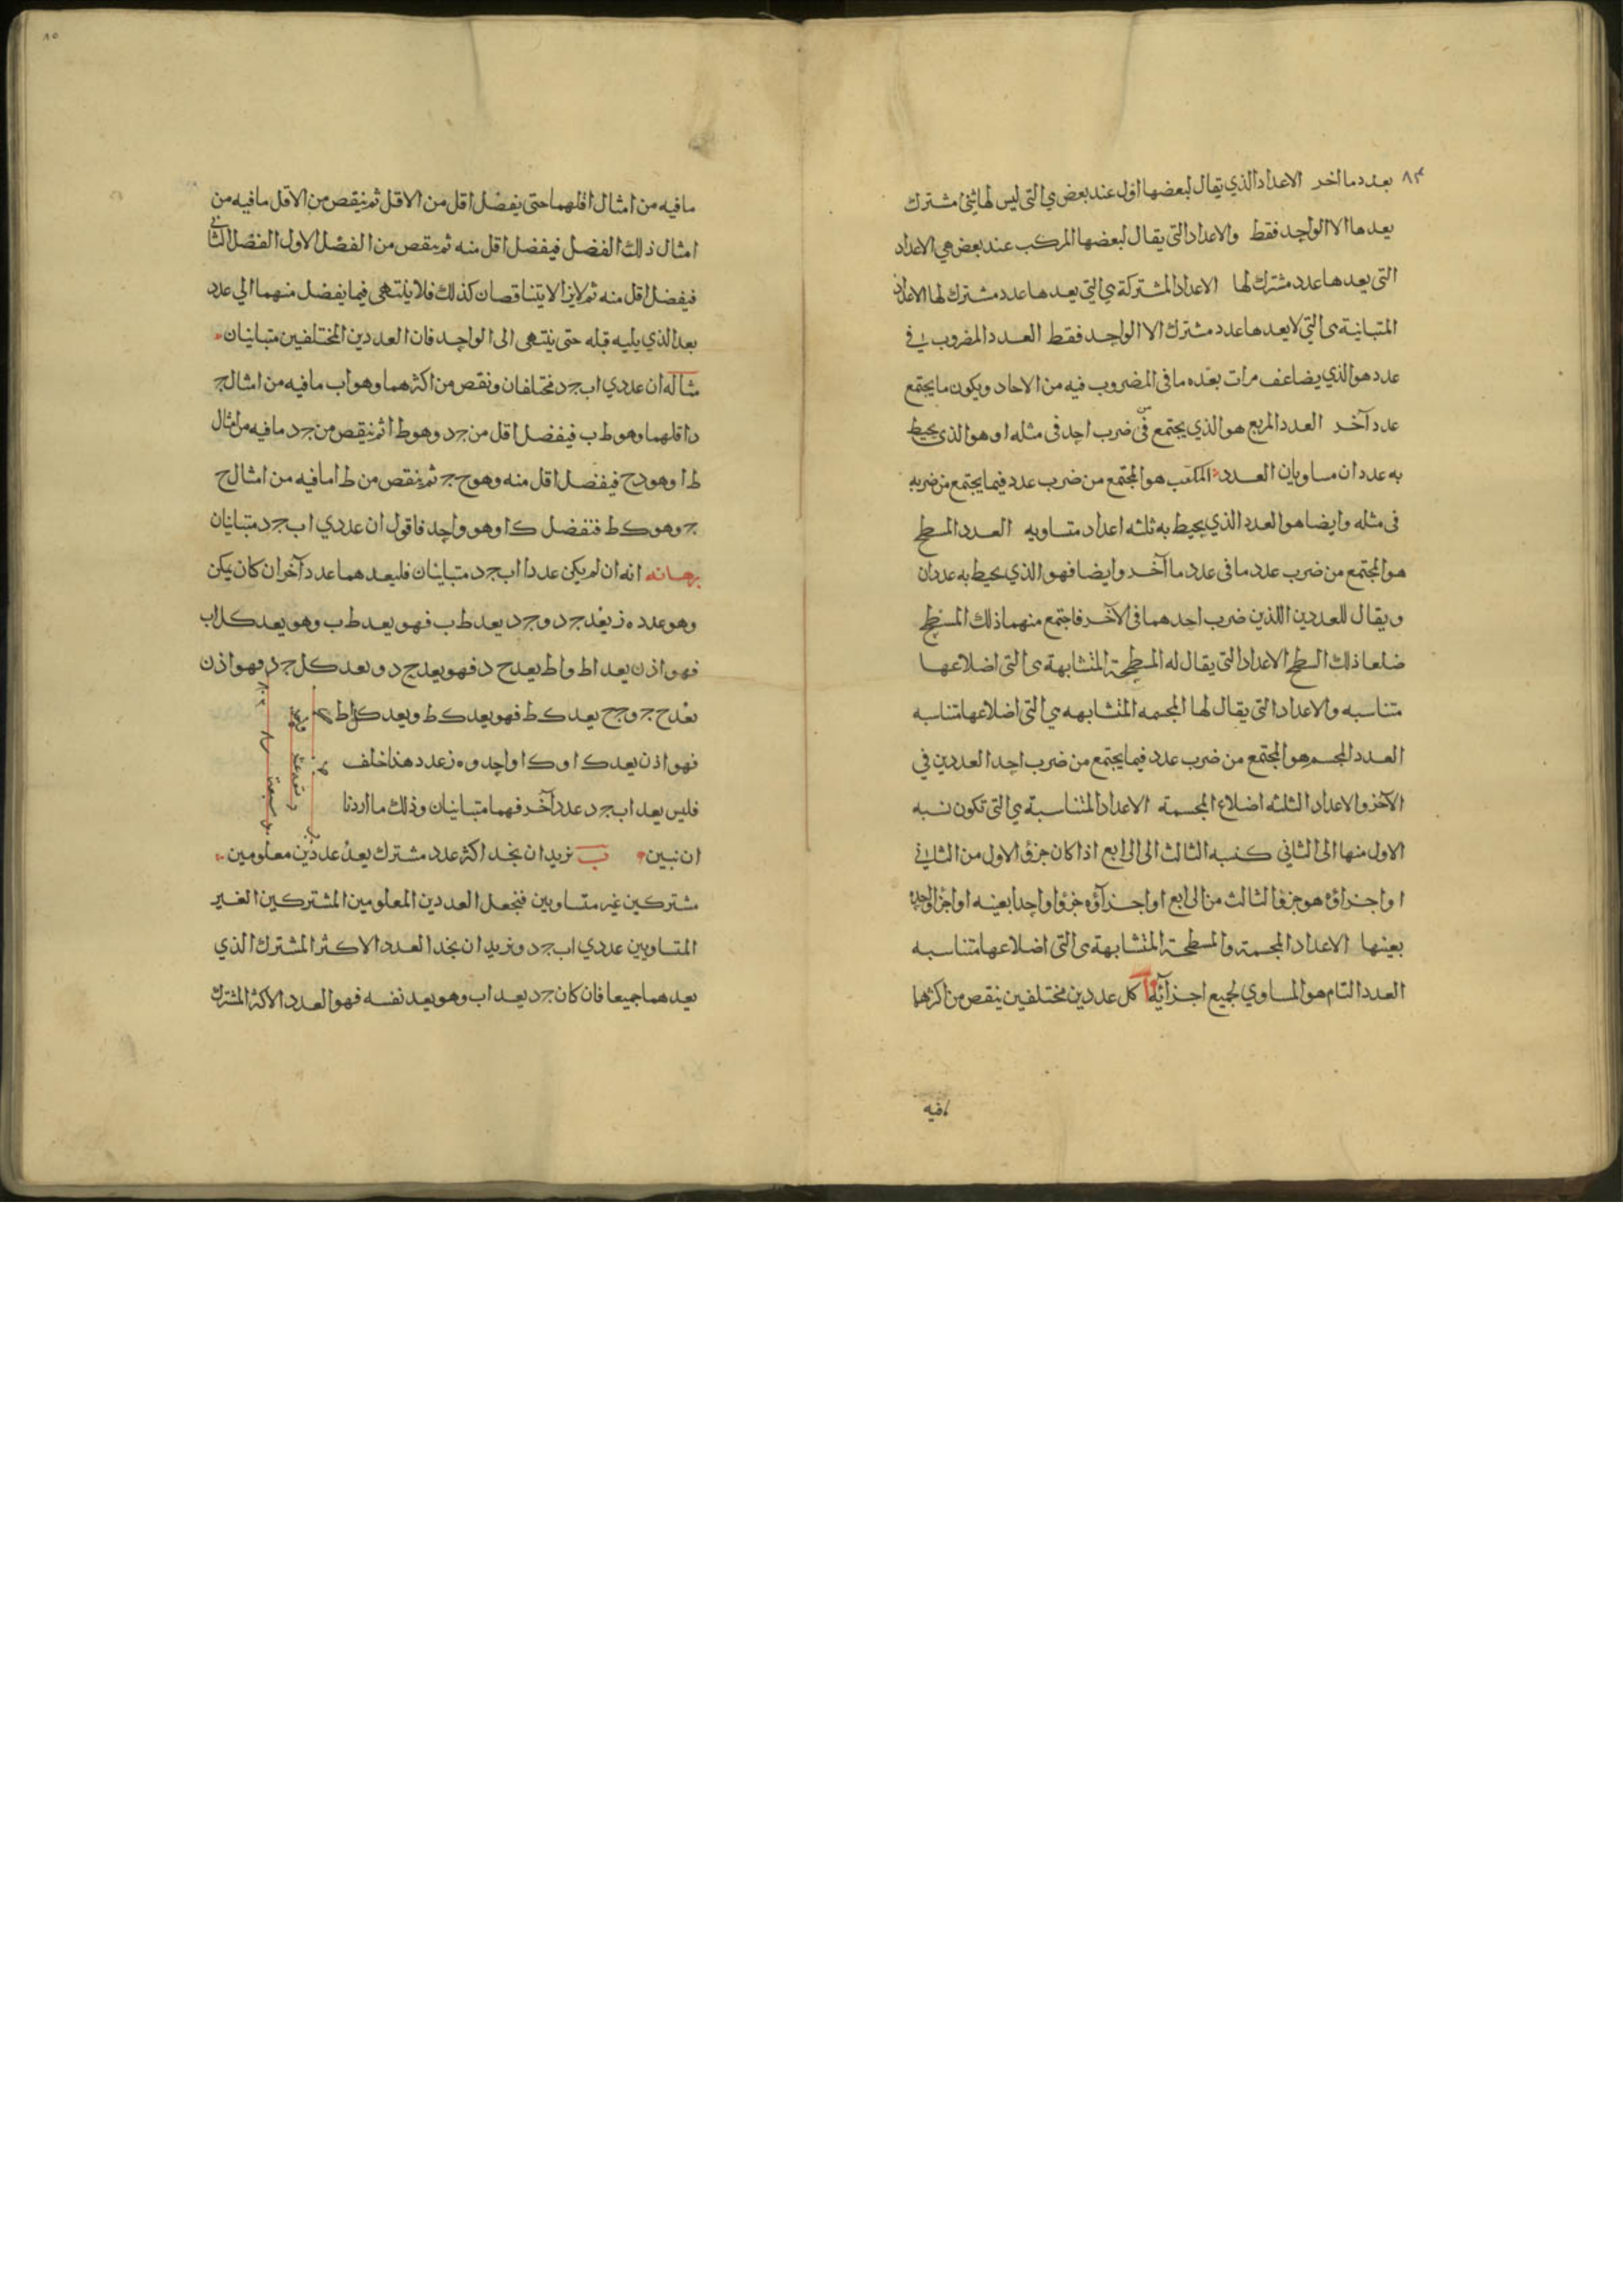 ٨٤
بعدد ما اخر الاعداد الذي يقال لبعضها اول عند بعض هي التي ليس لها شئ مشترك
يعدها الا الواحد فقط والاعداد التي يقال لبعضها المركب عند بعض هي الاعداد
التي يعدها عدد مشترك لها الاعداد المشتركة هي التي يعدها عدد مشترك لها الاعداد
المتباينة هي التي لا يعدها عدد مشترك الا الواحد فقط العدد المضروب في
عدد هو الذي يضاعف مرات بعده ما في المضروب فيه من الاحاد ويكون ما يجتمع
عدد آخر العدد المربع هو الذي يجتمع من ضرب احد في مثله او هو الذي يحيط
به عددان مساويان العدد المكعب هو المجتمع من ضرب عدد فيما يجتمع من ضربه
في مثله وايضا هو العدد الذي يحيط به ثلثه اعداد متساويه العدد المسطح
هو المجتمع من ضرب عدد ما في عدد ما آخر وايضا فهو الذي يحيط به عددان
ويقال للعددين اللذين ضرب احدهما في الآخر فاجتمع منهما ذلك المسطح
ضلعا ذلك السطح الاعداد التي يقال له المسطحة المتشابهة هي التي اضلاعها
متناسبه والاعداد التي يقال لها المجسمه المتشابهه هي التي اضلاعها متناسبه
العدد المجسم هو المجتمع من ضرب عدد فيما يجتمع من ضرب احد العددين في
الآخر والاعداد الثلثه اضلاع المجسمة الاعداد المتناسبة هي التي تكون نسبه
الاول منها الى الثاني كنسبه الثالث الى الرابع اذا كان جزؤ الاول من الثاني
او اجزاؤه هو جزؤ الثالث من الرابع او اجزآؤه جزؤا واحدا بعينه او اجزا واحده
بعينها الاعداد المجسمة والمسطحة المتشابهة هي التي اضلاعها متناسبه
العدد التام هو المساوي لجميع اجزآئه ا كل عددين مختلفين ينقص من اكثرهما
مافيه
٨٥
ما فيه من امثال اقلهما حتى يفضل اقل من الاقل ثم ينقص من الاقل ما فيه من
امثال ذلك الفضل فيفضل اقل منه ثم ينقص من الفضل الاول الفضل الثاني
فيفضل اقل منه ثم لا يزالا يتناقصان كذلك فلا ينتهى فيما يفضل منهما الي عدد
يعد الذي يليه قبله حتى ينتهى الى الواحد فان العددين المختلفين متباينان
مثاله ان عددي اب جد مختلفان ونقص من اكثرهما وهو اب ما فيه من امثال ج
د اقلهما وهو ط ب فيفضل اقل من جد وهو ط ا ثم ينقص من جد ما فيه من امثال
ط ا وهو دح فيفضل اقل منه وهو ح ج ثم ننقص من ط ا ما فيه من امثال ح
ج وهو ك ط فتفضل ك ا وهو واحد فاقول ان عددي اب جد متباينان
برهانه انه ان لم يكن عددا اب جد متباينان فليعدهما عدد آخر ان كان يمكن
وهو عدد ه ز يعد جد وجد يعد ط ب فهو يعد ط ب وهو يعد كل اب
فهو اذن يعد اط واط يعد ح د فهو يعد ح د ويعد كل جد فهو اذن
يعد ح ج وجح يعد ك ط فهو يعد ك ط ويعد كل اط
فهو اذن يعد ك ا وك ا واحد وه ز عدد هذا خلف
فليس يعد اب جد عدد آخر فهما متباينان وذلك ما اردنا
ان نبين ب نريد ان نجد اكثر عدد مشترك يعد عددين معلومين
مشتركين غير متساويين فنجعل العددين المعلومين المشتركين الغير
المتساويين عددي اب جد ونريد ان نجد العدد الاكثر المشترك الذي
يعدهما جميعا فان كان جد يعد اب وهو يعد نفسه فهو العدد الاكثر المشترك